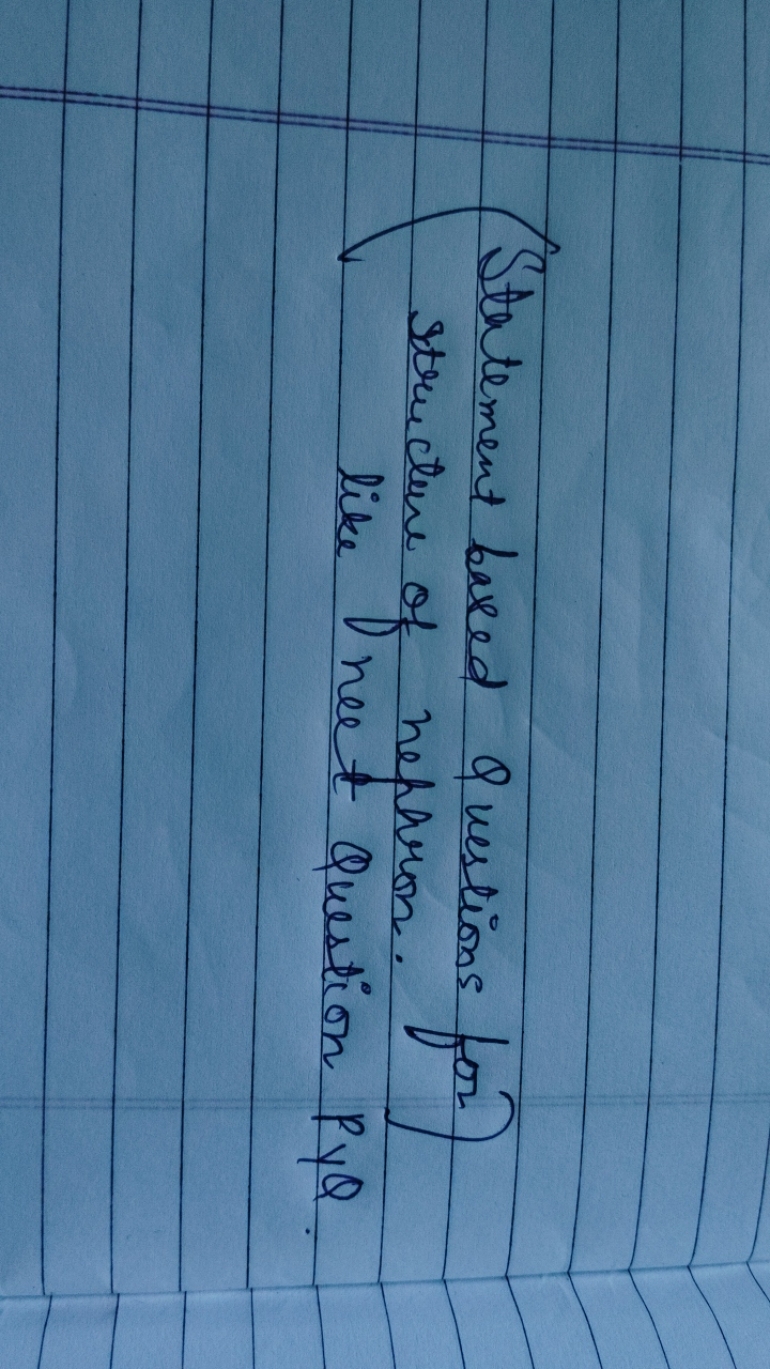 (Statement based Questions for)
structure of nephron.
like neet Question PYQ.